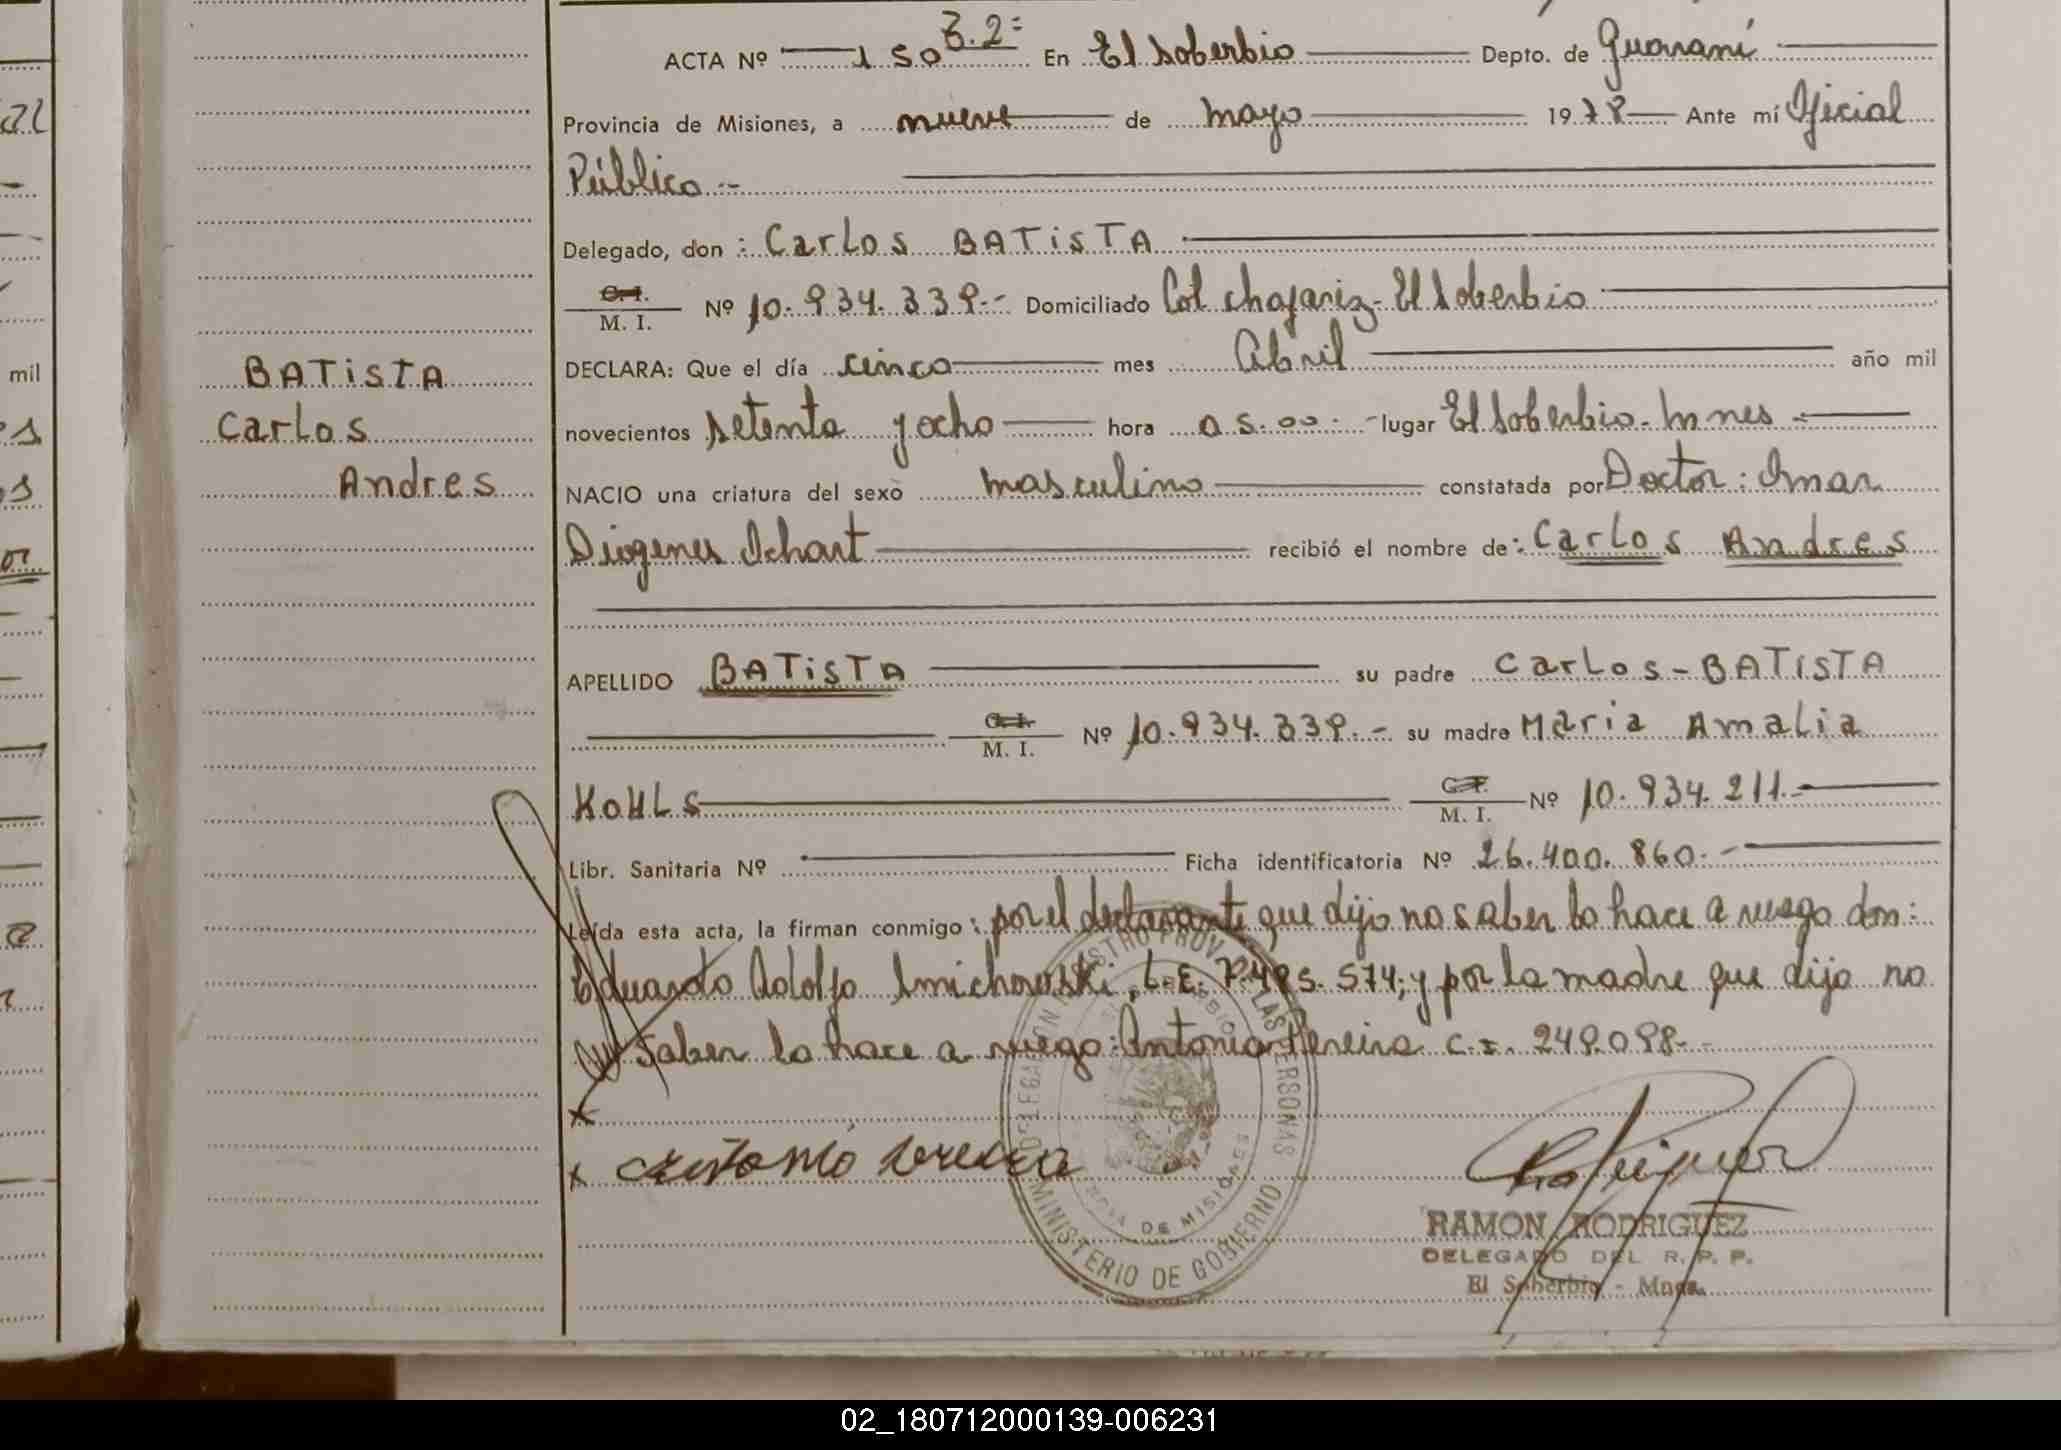 3.2=
ACTA Nº 150 En El Soberbio Depto. de Guaraní
Provincia de Misiones, a nueve de mayo 1978 Ante mí Oficial
Público.-
Delegado, don : Carlos BATISTA
C.I. M. I. Nº 10.934.339.- Domiciliado Col. Chafariz- El Soberbio
DECLARA: Que el día cinco mes Abril año mil
novecientos setenta y ocho hora 05.00.- lugar El Soberbio- Mnes -
NACIO una criatura del sexo masculino constatada por Doctor: Omar
Diogenes Ichart recibió el nombre de: Carlos Andres
APELLIDO BATISTA su padre Carlos-BATISTA
M. I. Nº 10.934.339.- su madre Maria Amalia
KOHLS M. I. Nº 10.934.211.-
Libr. Sanitaria Nº Ficha identificatoria Nº 26.400.860.-
Leída esta acta, la firman conmigo : por el declarante que dijo no saber lo hace a ruego don:
Eduardo Adolfo L.E. 574; y por la madre que dijo no
saber lo hace a ruego: Antonio Pereira C.I. 249.098.-
x
x Antonio Pereira
BATISTA
Carlos
Andres
mil
MINISTERIO DE GOBIERNO
DE MISIONES
RAMON RODRIGUEZ
DELEGADO DEL R. P. P.
El Soberbio - Mnes.
02_180712000139-006231